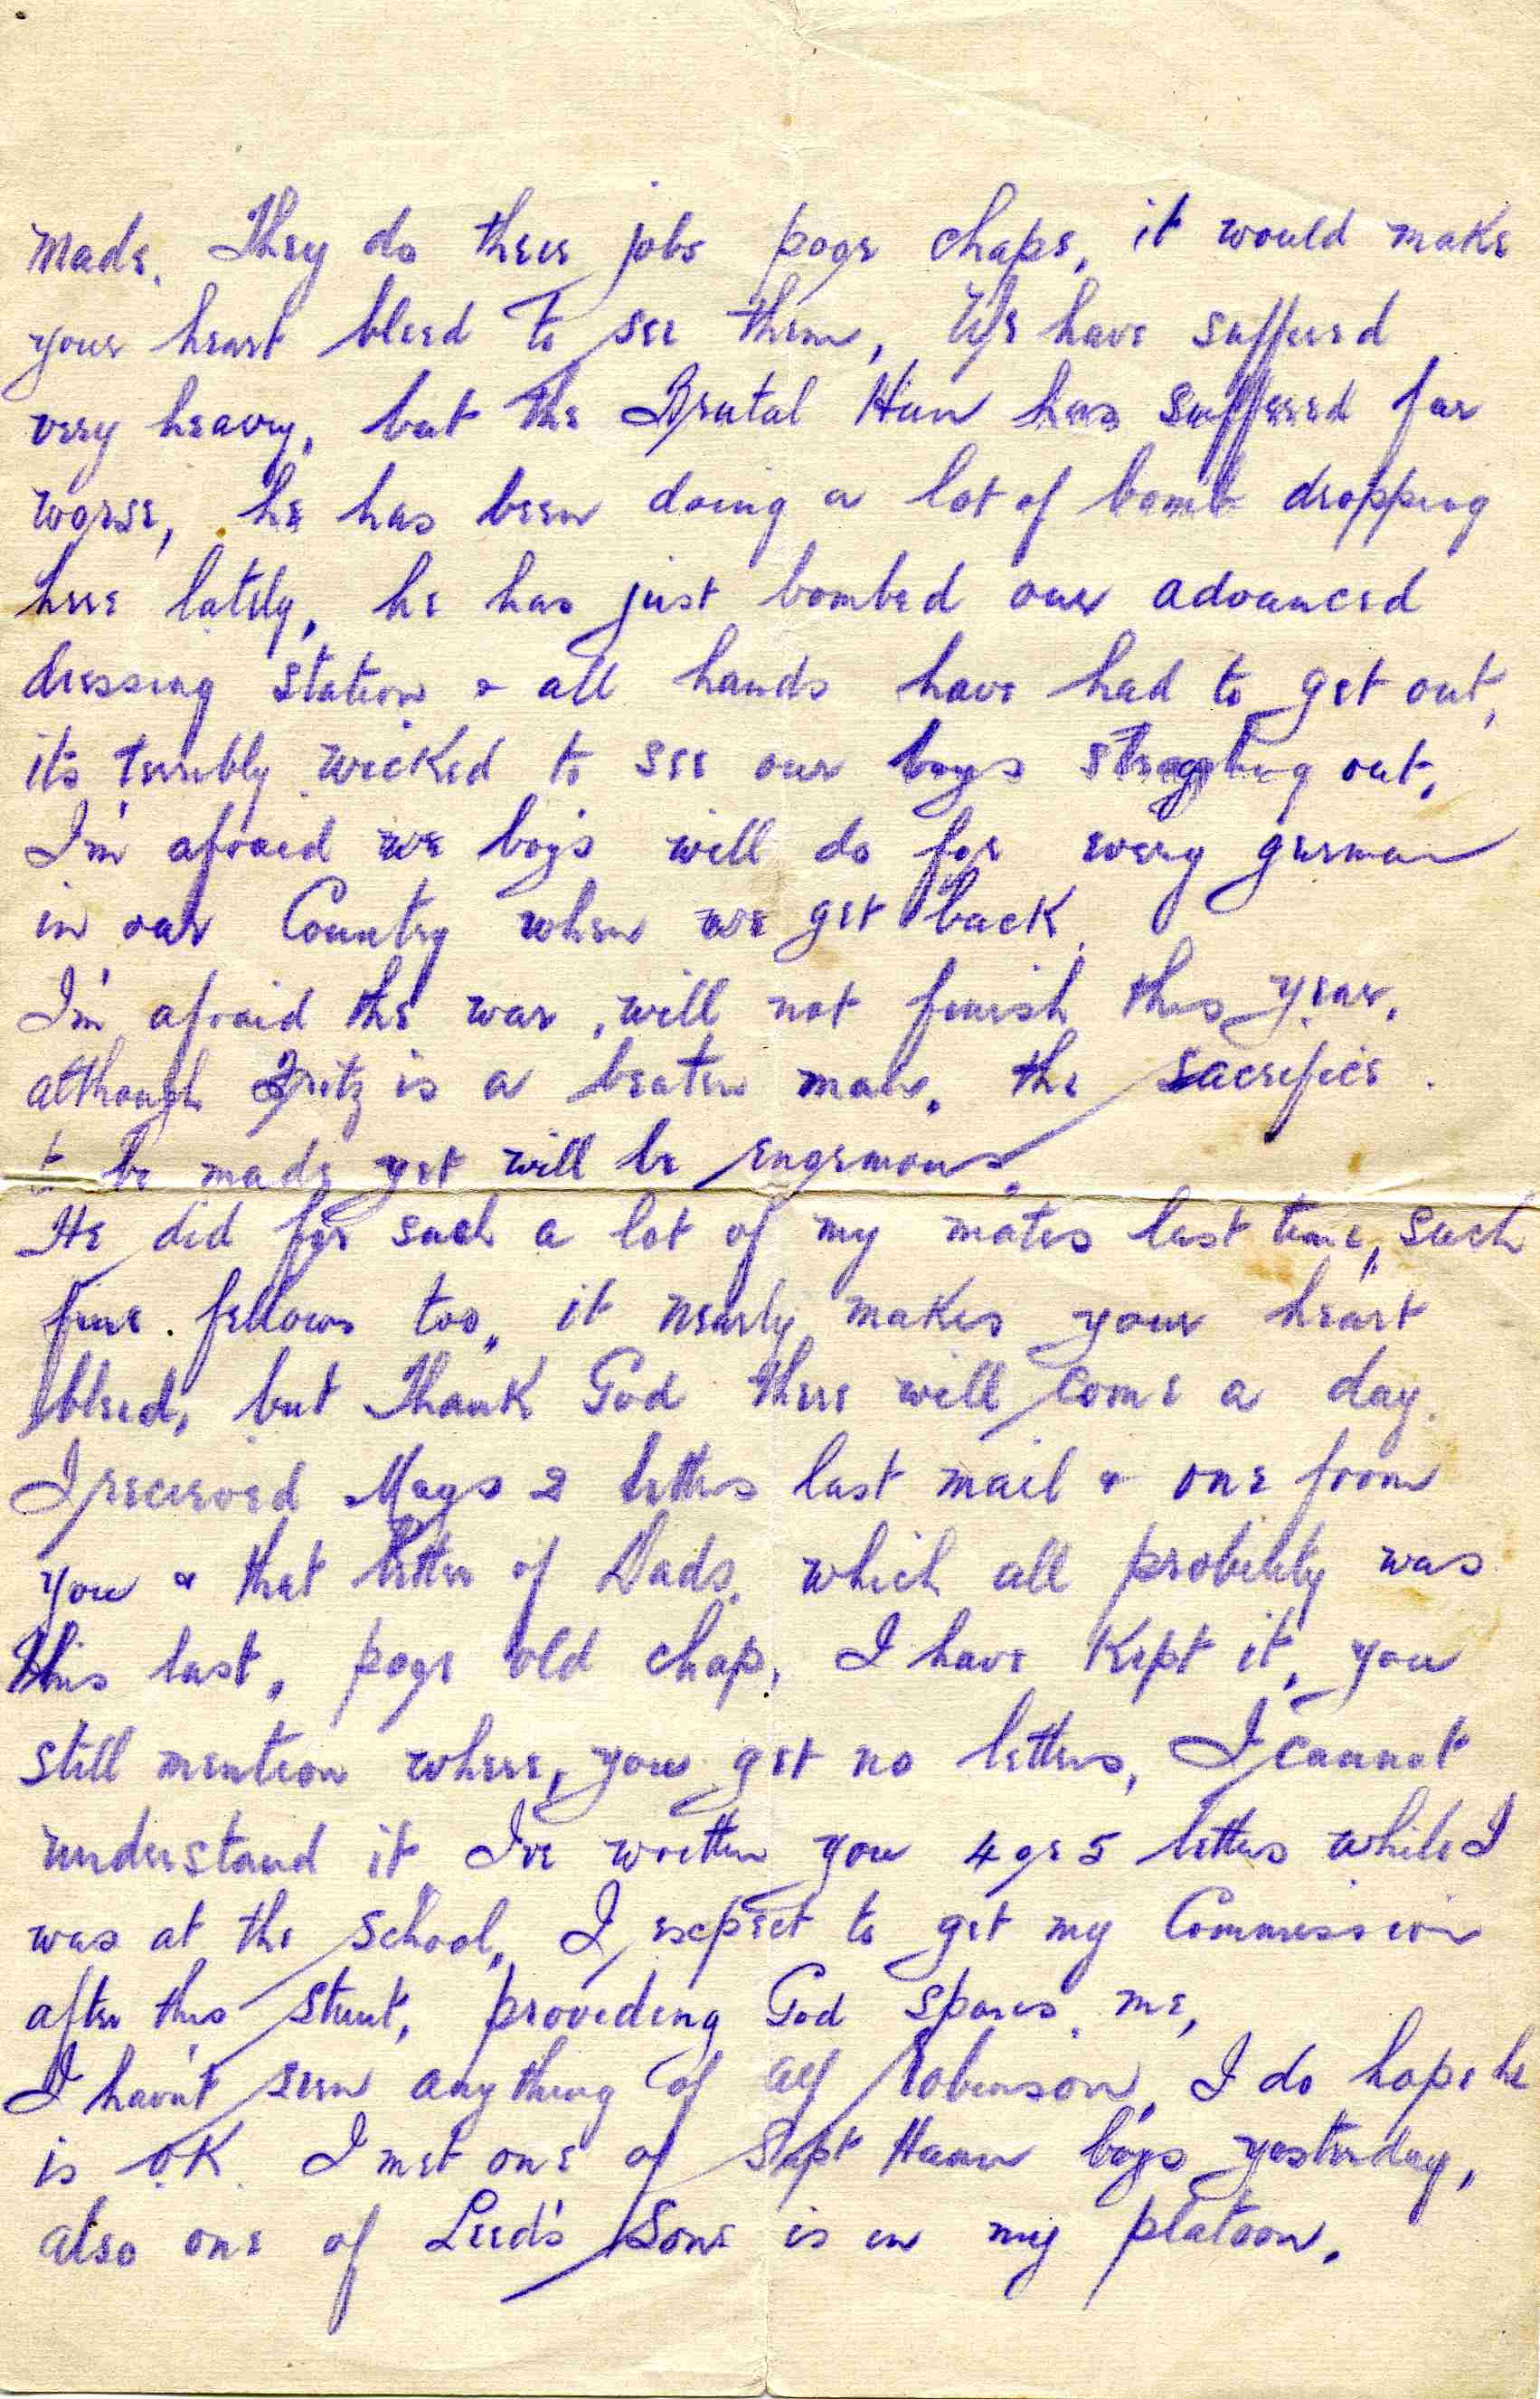 made. They do there jobs poor chaps, it would make
your heart bleed to see them, We have sufferd
very heavy, but the Brutal Hun has suffered far
worse, he has been doing a lot of bomb dropping
here lately, he has just bombed our advanced
dressing station & all hands have had to get out,
its terribly wicked to see our boys straggling out,
I'm afraid we boys will do for every german
in our Country when we get back.
I'm afraid the war will not finish this year,
although Fritz is a beaten man, the sacrifice
to be made yet will be enormous.
He did for such a lot of my mates last time, such
fine fellows too, it nearly makes your heart
bleed, but Thank God there will come a day.
I received Mags 2 letters last mail & one from
you & that letter of Dads. which all probility was
his last, poor old chap, I have kept it, you
still mention where, you get no letters, I cannot
understand it I've written you 4 or 5 letters while I
was at the School, I expect to get my Commission
after this stunt, providing God spares me,
I havn't seen anything of Alf Robinson, I do hope he
is OK I met one of Supt boys yesterday,
also one of Leed's Sons is in my platoon.